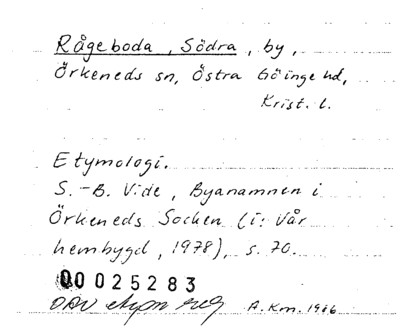 Rågeboda, Södra, by,
Örkeneds sn, Östra Göinge hd,
Krist. l.
Etymologi.
S.-B. Vide, Byanamnen i
Örkeneds Socken (i: Vår
hembygd, 1978), s. 70.
00025283
A. Km. 1986